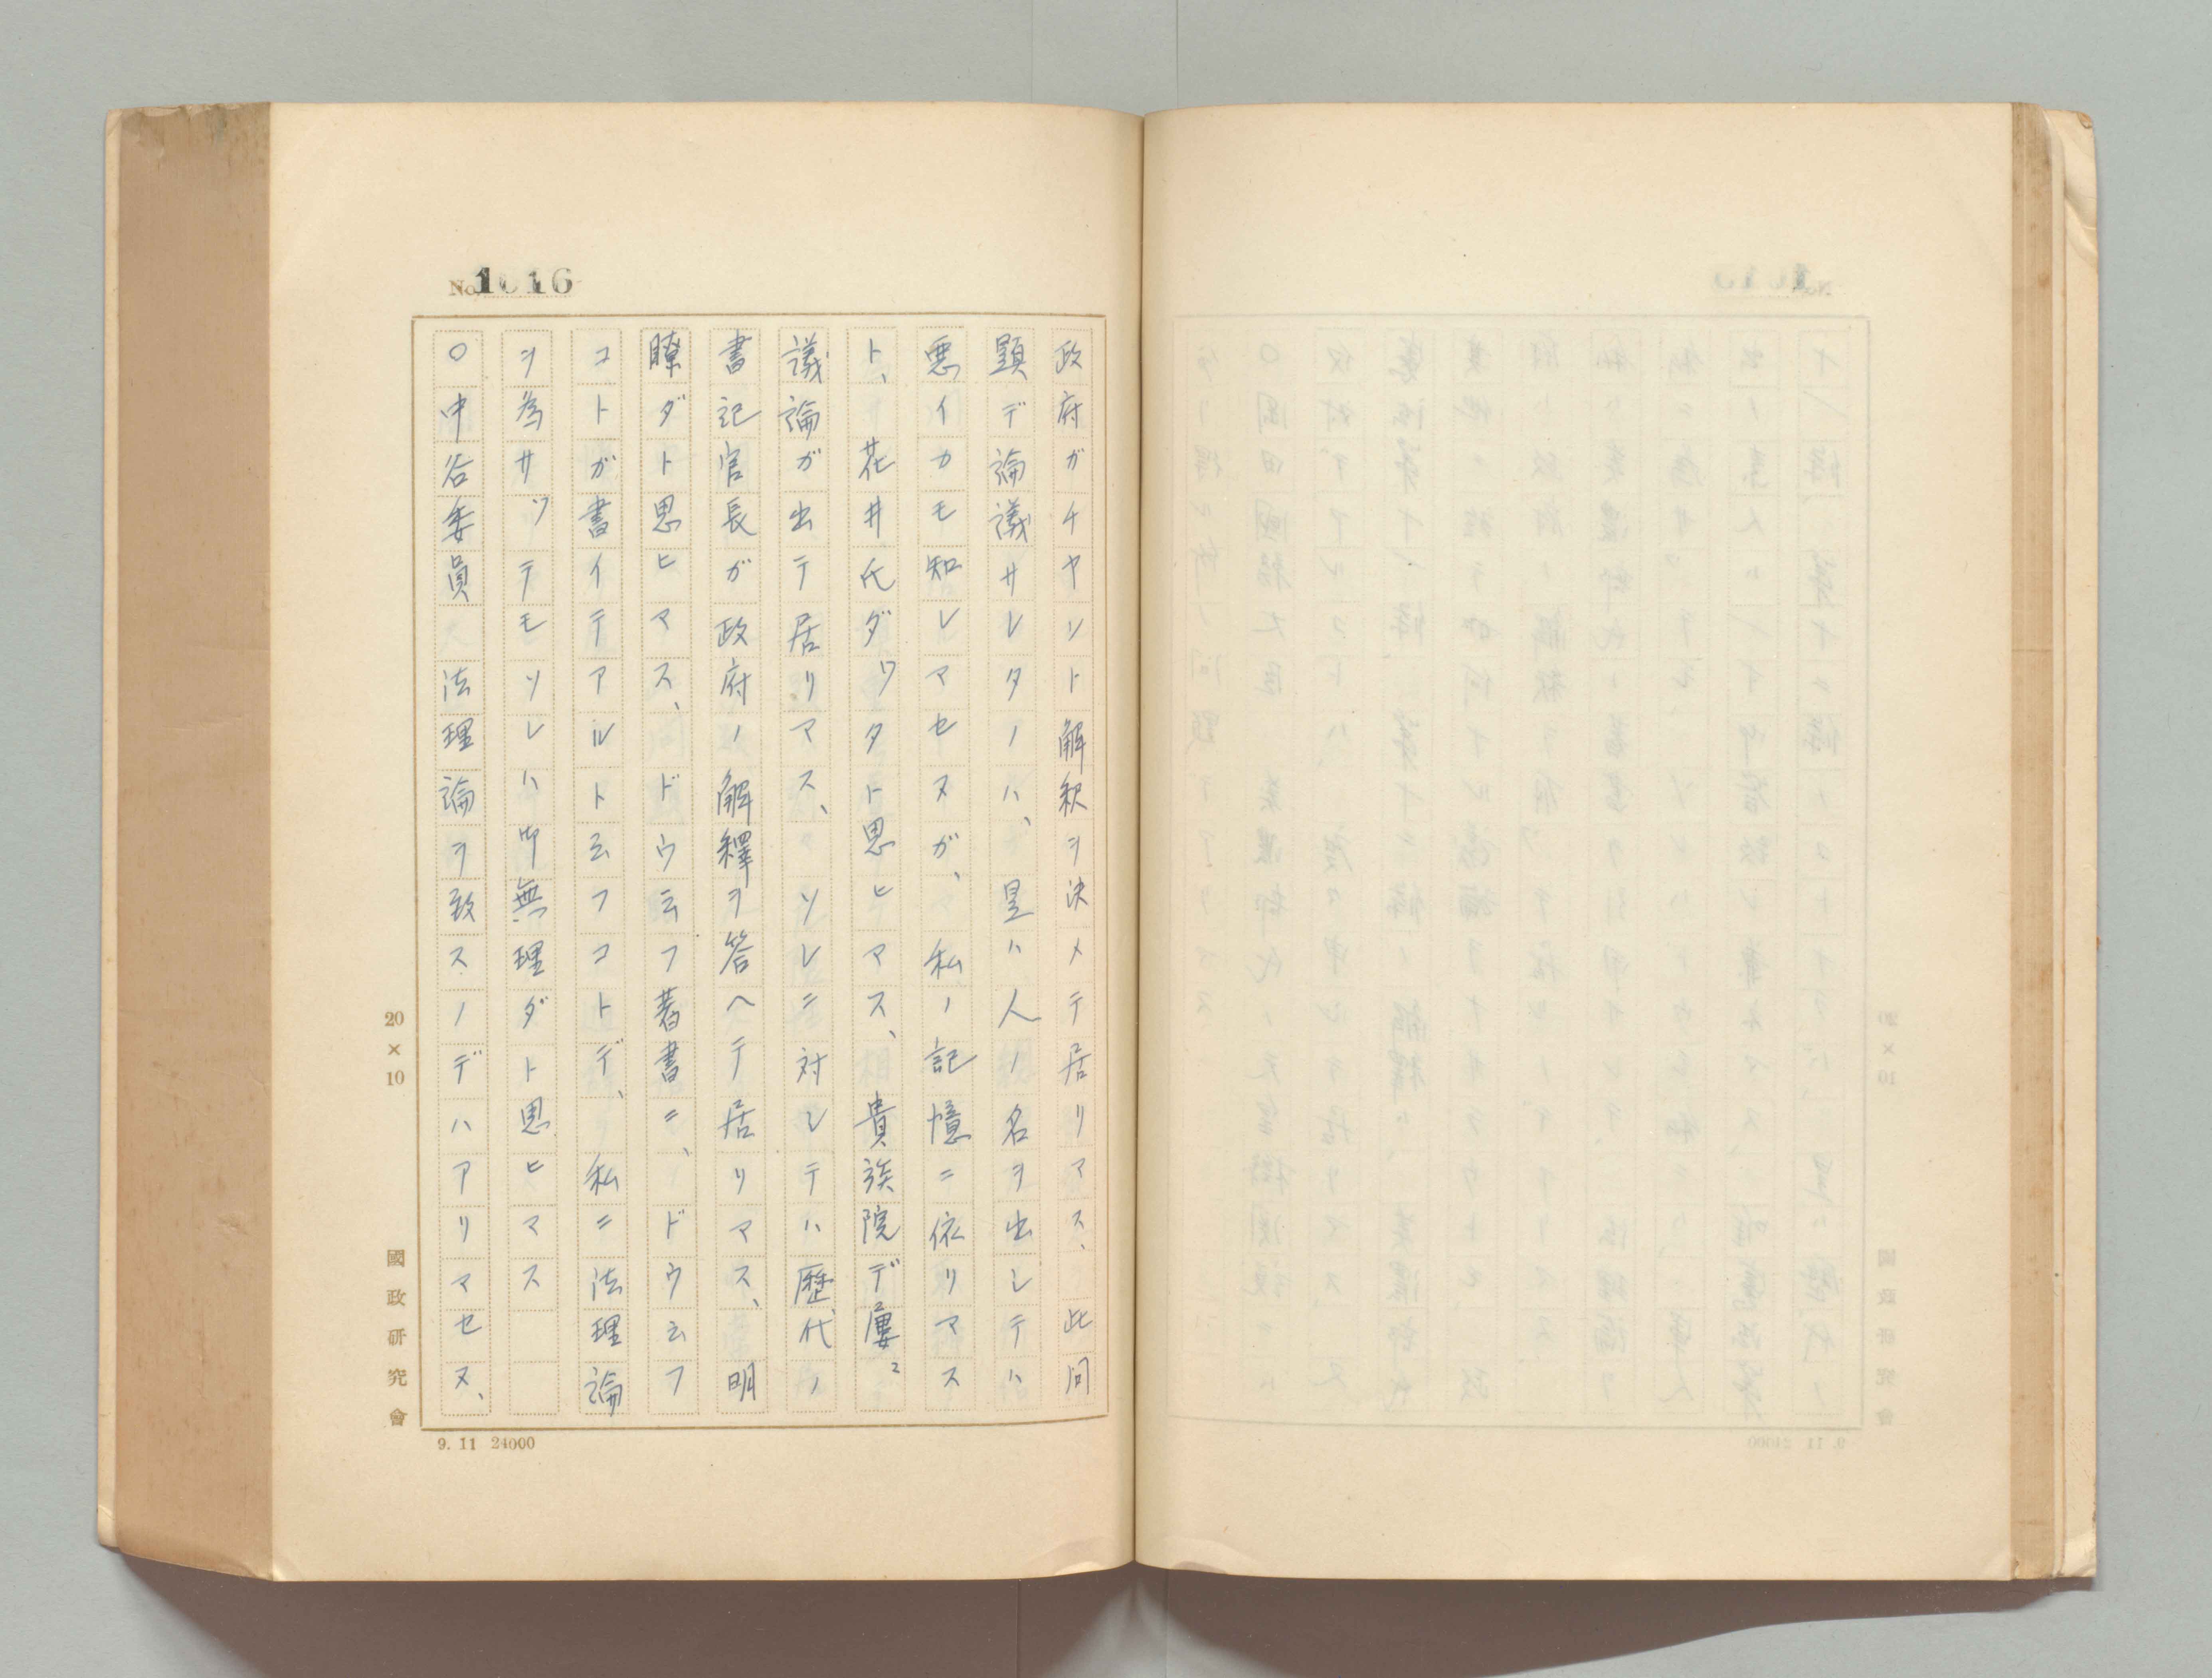 No. 1016
政府ガチヤント解釈ヲ決メテ居リマス、此問
題デ論議サレタノハ、是ハ人ノ名ヲ出シテハ
悪イカモ知レマセヌガ、私ノ記憶ニ依リマス
ト、花井氏ダツタト思ヒマス、貴族院デ屢〻
議論ガ出テ居リマス、ソレニ対シテハ歴代ノ
書記官長ガ政府ノ解釋ヲ答ヘテ居リマス、明
瞭ダト思ヒマス、ドウ云フ著書ニ、ドウ云フ
コトガ書イテアルト云フコトデ、私ニ法理論
ヲ為サツテモソレハ御無理ダト思ヒマス
〇中谷委員 法理論ヲ致スノデハアリマセヌ、
20×10
國政研究會
9. 11 24000